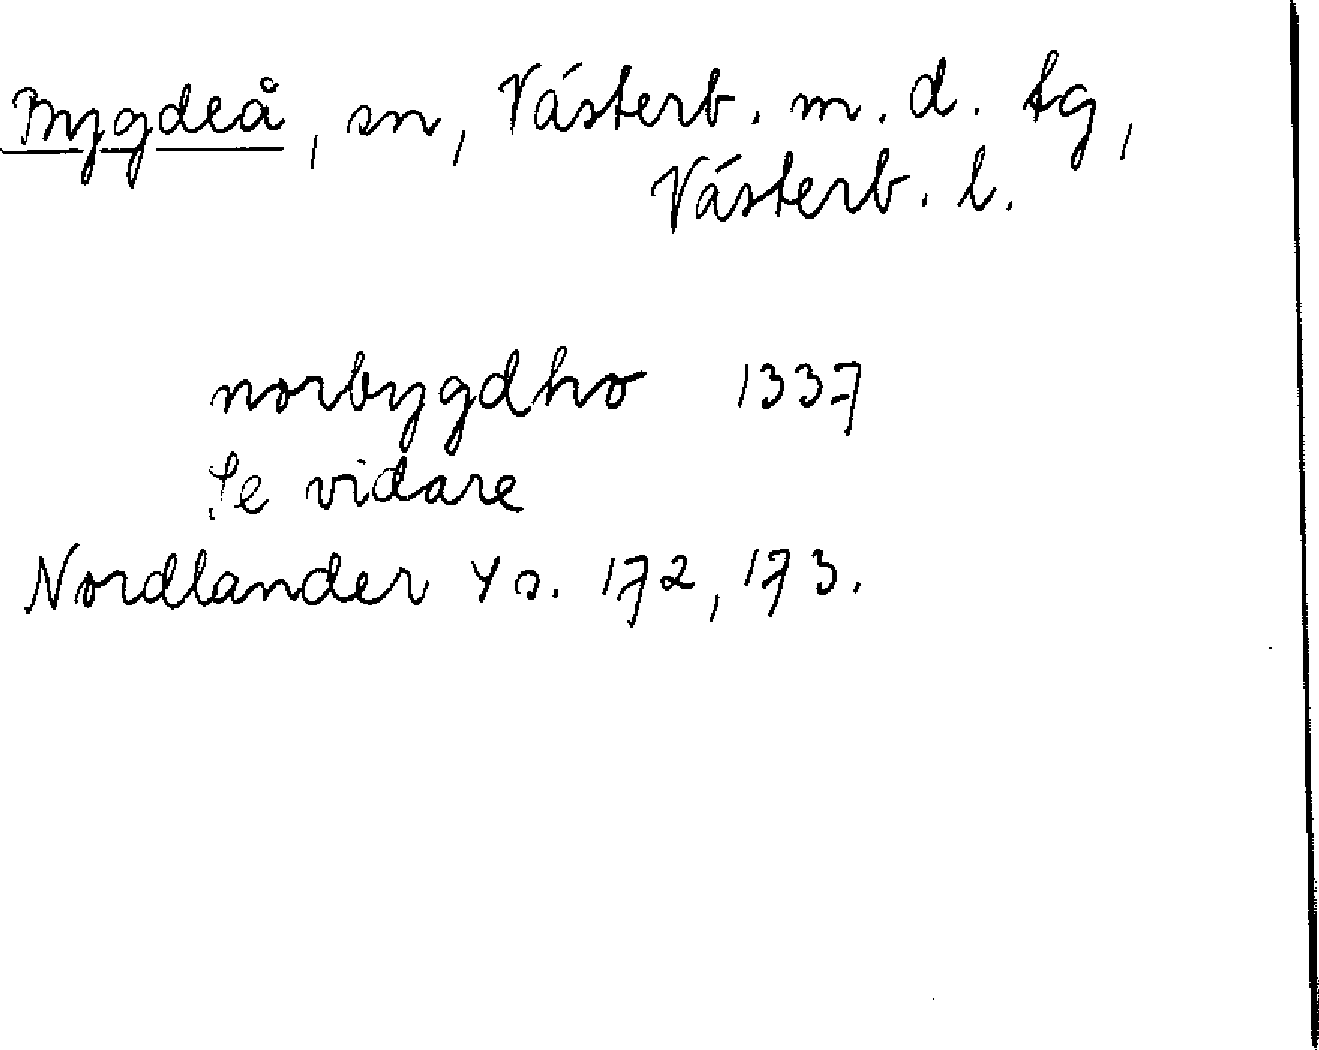 Bygdeå, sn, Västerb. m. d. tg,
Västerb. l.
norbygdho 1337
Se vidare
Nordlander Y s. 172, 173.